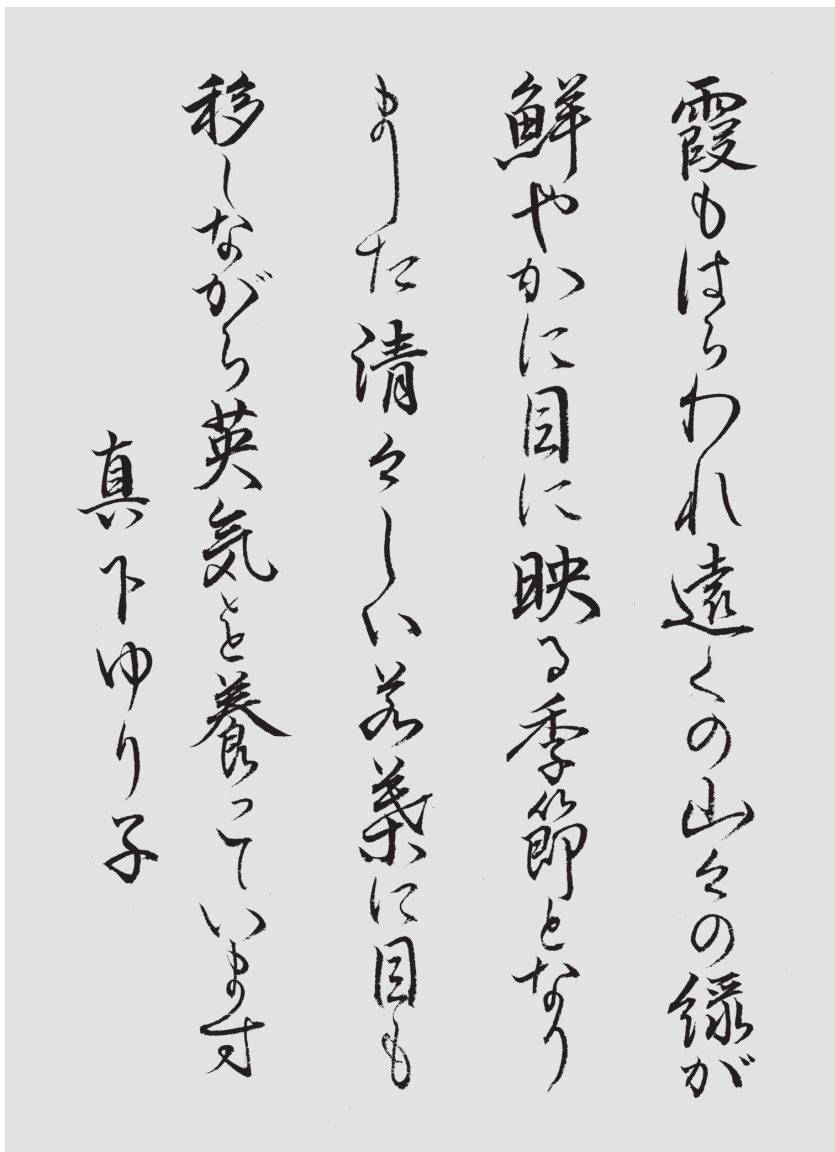 霞もはらわれ遠くの山々の緑が
鮮やかに目に映る季節となり
ました清々しい若葉に目も
移しながら英気を養っています
真下ゆり子